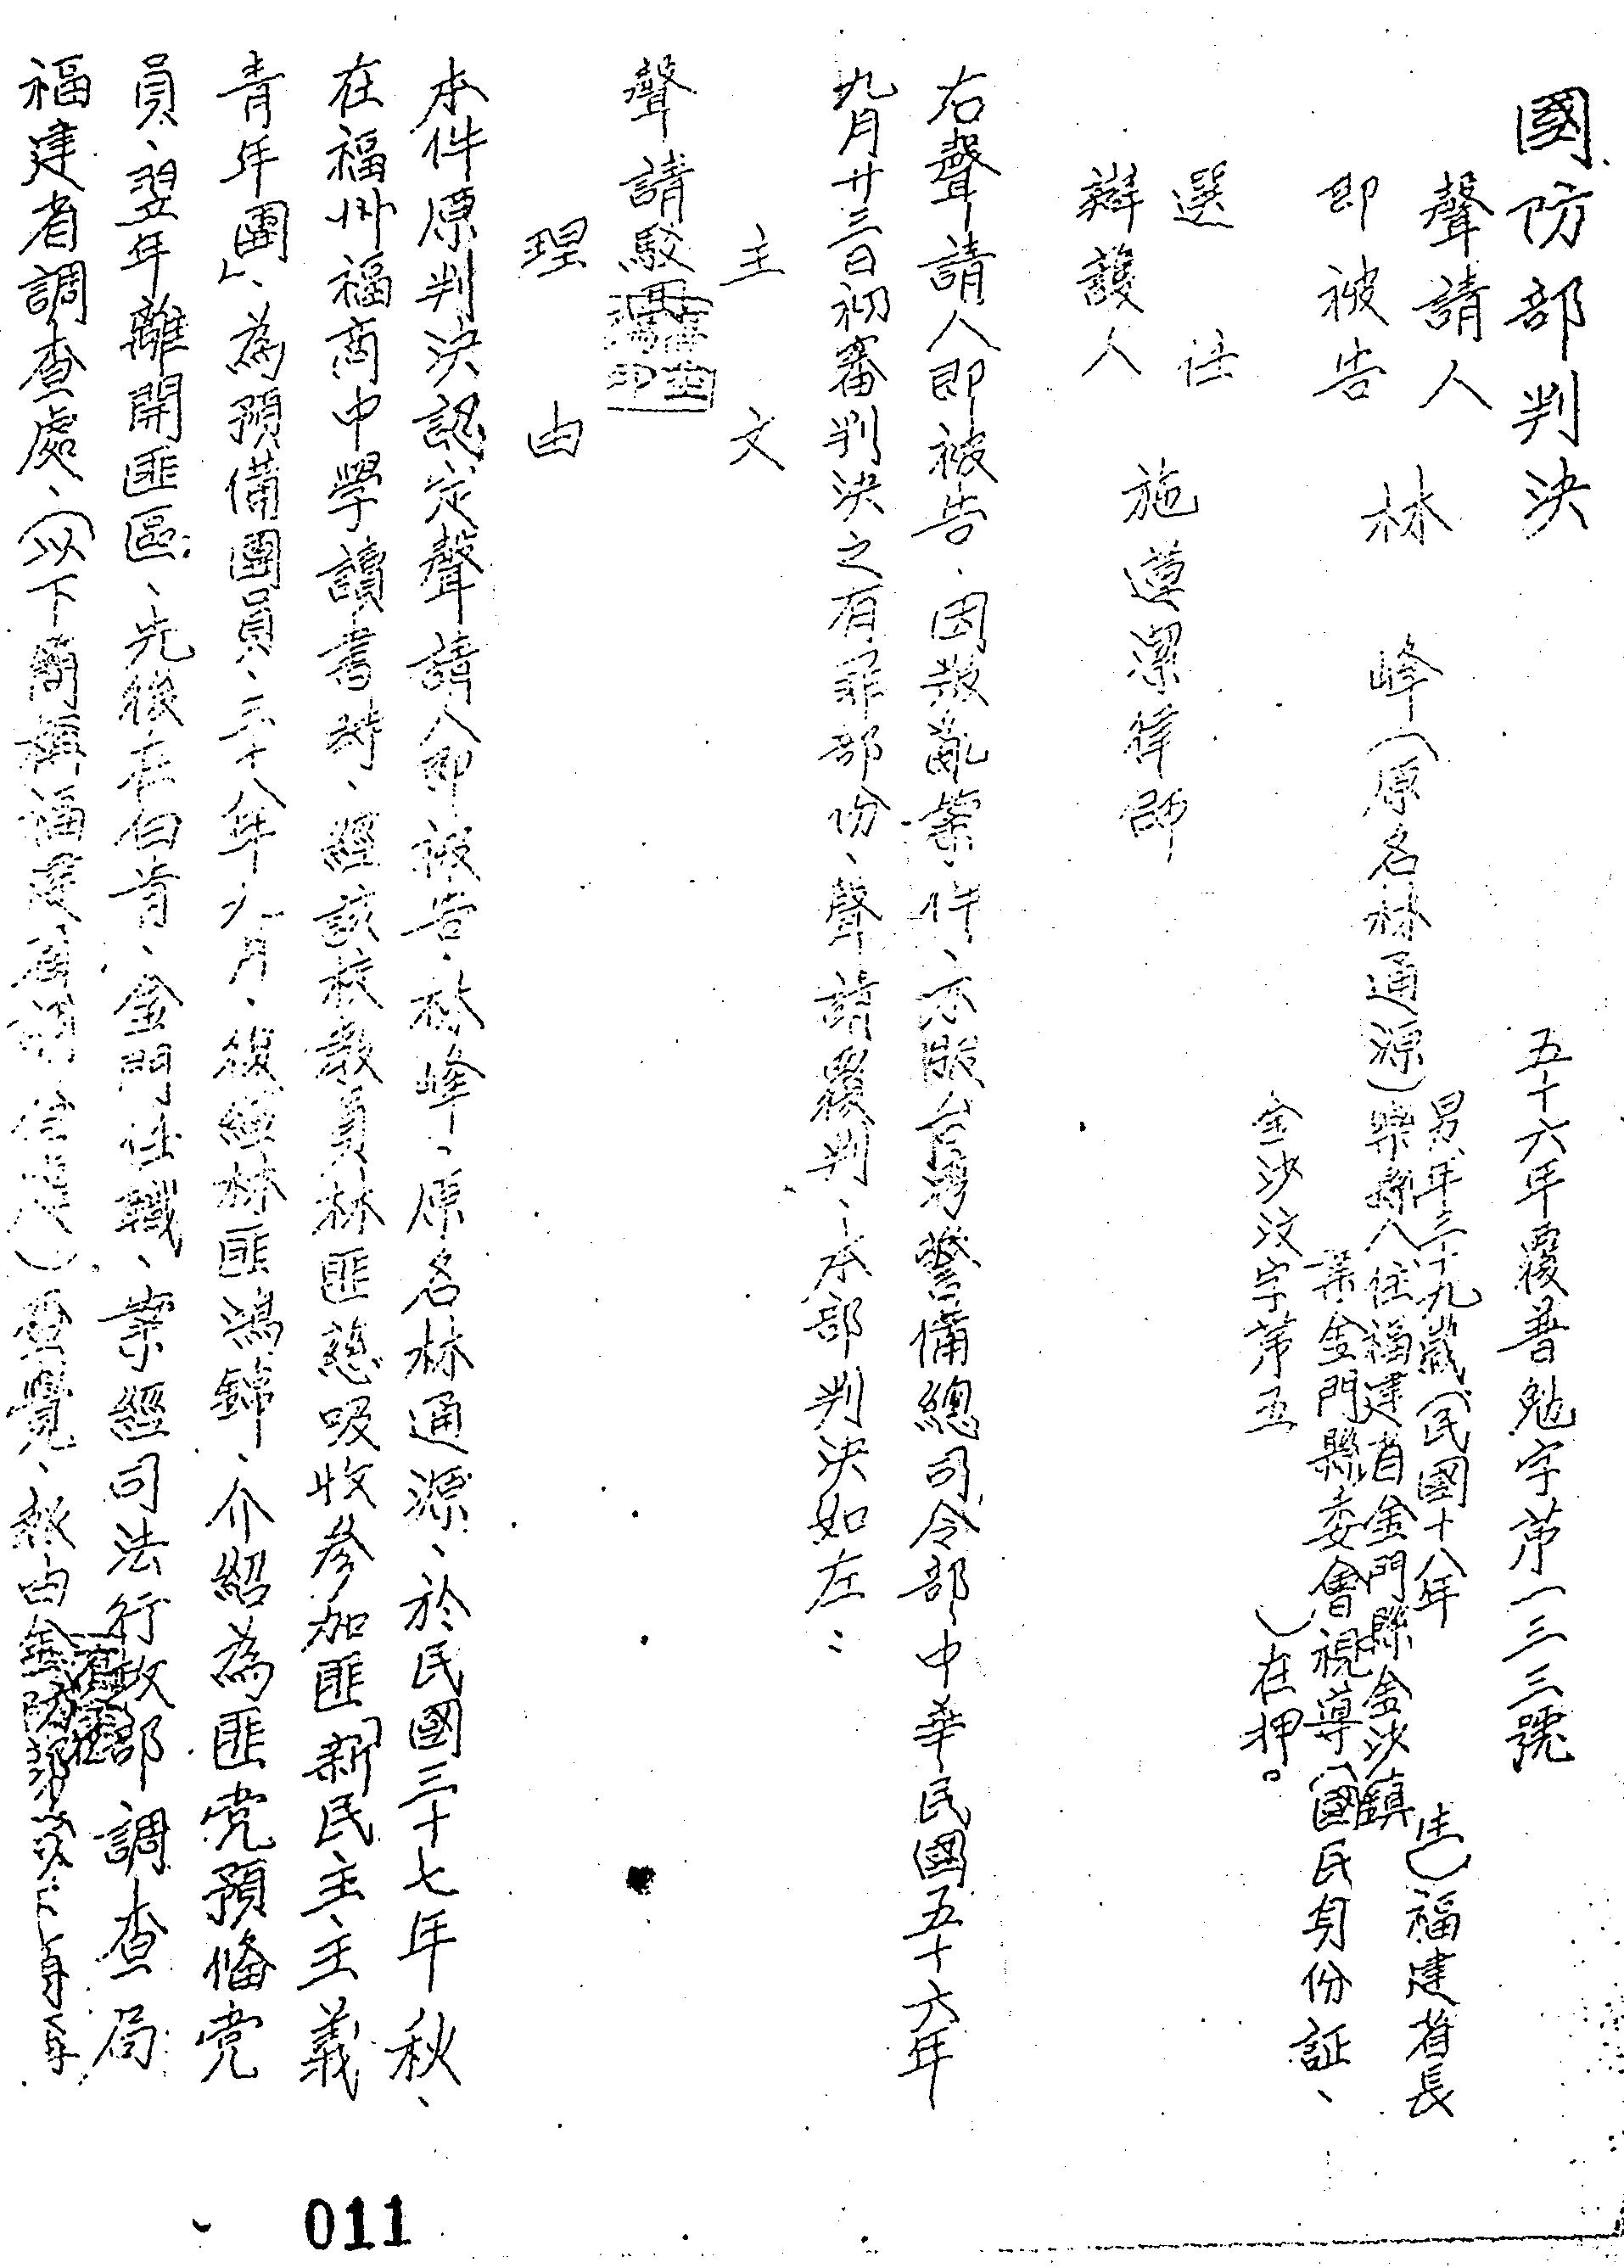 國防部判決
五十六年覆普勉字第一三三號
聲請人
即被告
林 峰（原名林通源）
男、年三十九歲（民國十八年
生）福建省長
樂縣人住福建省金門縣金沙鎮
業金門縣委會視導（國民身份証、
金沙汶字第五
）在押。
選任
辯護人
施遵潔律師
右聲請人即被告、因叛亂案件、不服台灣警備總司令部、中華民國五十六年
九月廿三日初審判決之有罪部份、聲請覆判、本部判決如左：
主文
聲請駁回
理由
本件原判決認定聲請人即被告、林峰、原名林通源、於民國三十七年秋、
在福州福商中學讀書時、經該校教員林匪慈吸收參加匪「新民主主義
青年團」、為預備團員、三十八年九月、復經林匪鴻錦、介紹為匪党預備党
員、翌年離開匪區、先後在白肯、金門任職、案經司法行政部調查局
福建省調查處、（以下簡稱福建省調查處）查覺、報由金防部
011